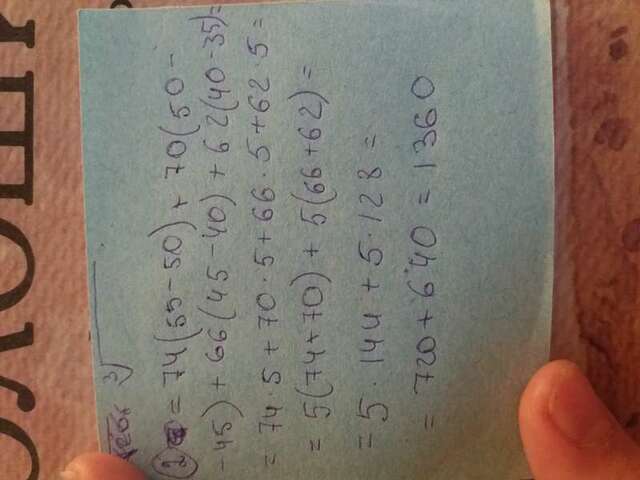 ОЛОШИ
³√
② = 74(55-50) + 70(50-
-45) + 66(45-40) + 62(40-35)=
= 74·5 + 70·5+66·5+62·5=
= 5(74+70) + 5(66+62)=
= 5·144 + 5·128 =
= 720 + 640 = 1360